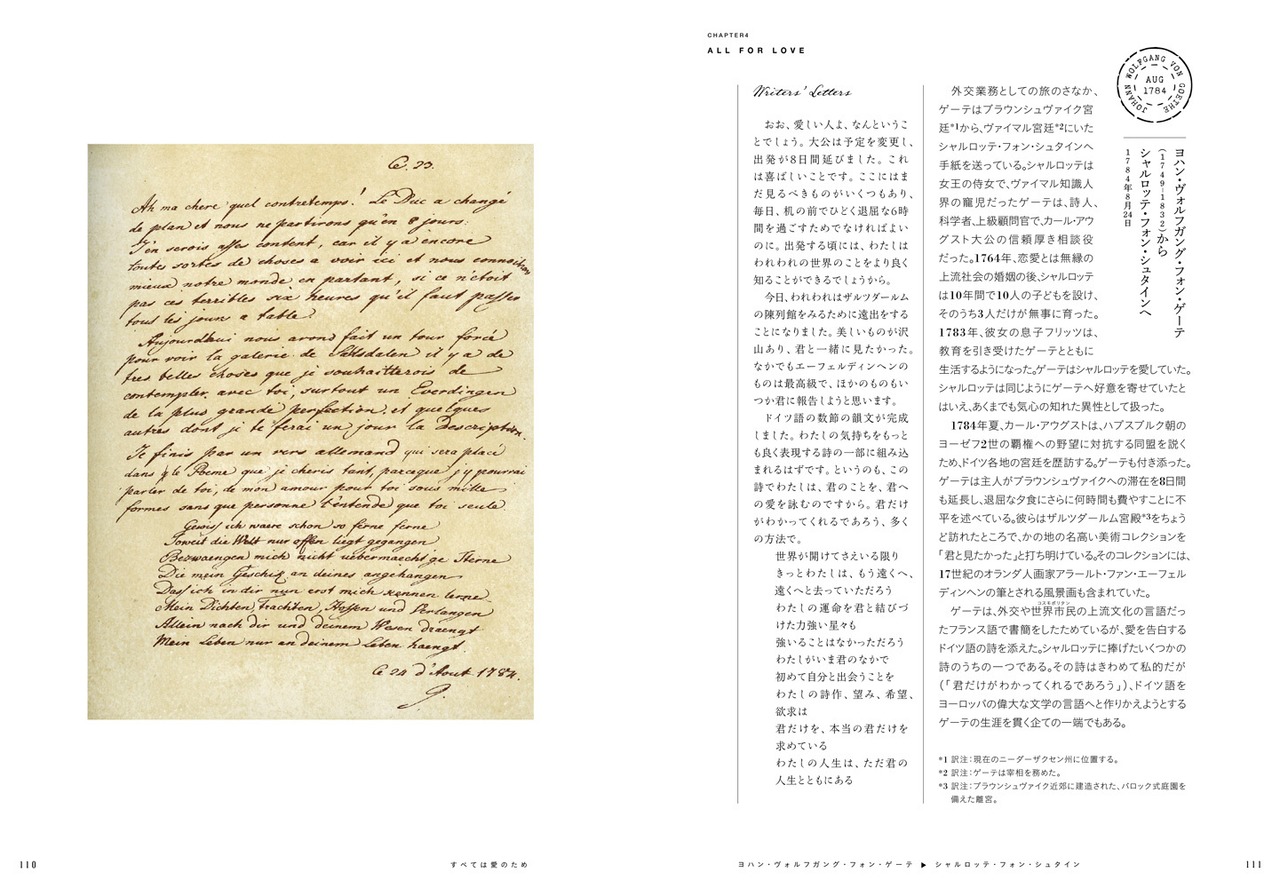 C. 23.
Ah ma chere quel contretemps! Le Duc a changé
de plan et nous ne partirons qu'en 8 jours.
J'en serois asses content, car il y a encore
toutes sortes de choses a voir ici et nous connoitrions
mieux notre monde en partant, si ce n'etoit
pas ces terribles six heures qu'il faut passer
tous les jours a table.
Aujourdhui nous avons fait un tour forcé
pour voir la galerie de Salsdalen il y a de
tres belles choses que je souhaitterois de
contempler avec toi, surtout un Everdingen
de la plus grande perfection, et quelques
autres dont je te ferai un jour la Description.
Je finis par un vers allemand qui sera placé
dans le Poeme que je cheris tant, parceque j'y pourrai
parler de toi, de mon amour pour toi sous mille
formes sans que personne l'entende que toi seule.
Gewiss ich waere schon so ferne ferne
Soweit die Welt nur offen liegt gegangen
Bezwaengen mich nicht uebermaechtge Sterne
Die mein Geschick an deines angehangen
Dass ich in dir nun erst mich kennen lerne
Mein Dichten, Trachten, Hoffen und Verlangen
Allein nach dir und deinem Wesen draengt
Mein Leben nur an deinem Leben haengt.
ce 24 d'Aout 1784.
G.
110
すべては愛のため
CHAPTER4
ALL FOR LOVE
JOHANN WOLFGANG VON GOETHE
AUG
1784
ヨハン・ヴォルフガング・フォン・ゲーテ
(1749-1832)から
シャルロッテ・フォン・シュタインへ
1784年8月24日
外交業務としての旅のさなか、
ゲーテはブラウンシュヴァイク宮
廷*1から、ヴァイマル宮廷*2にいた
シャルロッテ・フォン・シュタインへ
手紙を送っている。シャルロッテは
女王の侍女で、ヴァイマル知識人
界の寵児だったゲーテは、詩人、
科学者、上級顧問官で、カール・アウ
グスト大公の信頼厚き相談役
だった。1764年、恋愛とは無縁の
上流社会の婚姻の後、シャルロッテ
は10年間で10人の子どもを設け、
そのうち3人だけが無事に育った。
1783年、彼女の息子フリッツは、
教育を引き受けたゲーテとともに
生活するようになった。ゲーテはシャルロッテを愛していた。
シャルロッテは同じようにゲーテへ好意を寄せていたと
はいえ、あくまでも気心の知れた異性として扱った。
1784年夏、カール・アウグストは、ハプスブルク朝の
ヨーゼフ2世の覇権への野望に対抗する同盟を説く
ため、ドイツ各地の宮廷を歴訪する。ゲーテも付き添った。
ゲーテは主人がブラウンシュヴァイクへの滞在を8日間
も延長し、退屈な夕食にさらに何時間も費やすことに不
平を述べている。彼らはザルツダールム宮殿*3をちょう
ど訪れたところで、かの地の名高い美術コレクションを
「君と見たかった」と打ち明けている。そのコレクションには、
17世紀のオランダ人画家アラールト・ファン・エーフェル
ディンヘンの筆とされる風景画も含まれていた。
ゲーテは、外交や世界市民の上流文化の言語だっ
コスモポリテン
たフランス語で書簡をしたためているが、愛を告白する
ドイツ語の詩を添えた。シャルロッテに捧げたいくつかの
詩のうちの一つである。その詩はきわめて私的だが
(「君だけがわかってくれるであろう」)、ドイツ語を
ヨーロッパの偉大な文学の言語へと作りかえようとする
ゲーテの生涯を貫く企ての一端でもある。
*1 訳注:現在のニーダーザクセン州に位置する。
*2 訳注:ゲーテは宰相を務めた。
*3 訳注:ブラウンシュヴァイク近郊に建造された、バロック式庭園を
備えた離宮。
Writers' Letters
おお、愛しい人よ、なんというこ
とでしょう。大公は予定を変更し、
出発が8日間延びました。これ
は喜ばしいことです。ここにはま
だ見るべきものがいくつもあり、
毎日、机の前でひどく退屈な6時
間を過ごすためでなければよい
のに。出発する頃には、わたしは
われわれの世界のことをより良く
知ることができるでしょうから。
今日、われわれはザルツダールム
の陳列館をみるために遠出をする
ことになりました。美しいものが沢
山あり、君と一緒に見たかった。
なかでもエーフェルディンヘンの
ものは最高級で、ほかのものもい
つか君に報告しようと思います。
ドイツ語の数節の韻文が完成
しました。わたしの気持ちをもっと
も良く表現する詩の一部に組み込
まれるはずです。というのも、この
詩でわたしは、君のことを、君へ
の愛を詠むのですから。君だけ
がわかってくれるであろう、多く
の方法で。
世界が開けてさえいる限り
きっとわたしは、もう遠くへ、
遠くへと去っていただろう
わたしの運命を君と結びづ
けた力強い星々も
強いることはなかっただろう
わたしがいま君のなかで
初めて自分と出会うことを
わたしの詩作、望み、希望、
欲求は
君だけを、本当の君だけを
求めている
わたしの人生は、ただ君の
人生とともにある
ヨハン・ヴォルフガング・フォン・ゲーテ ▶ シャルロッテ・フォン・シュタイン
111